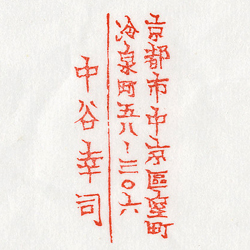 京都市中京區室町
冷泉町五八-三〇六
中谷幸司